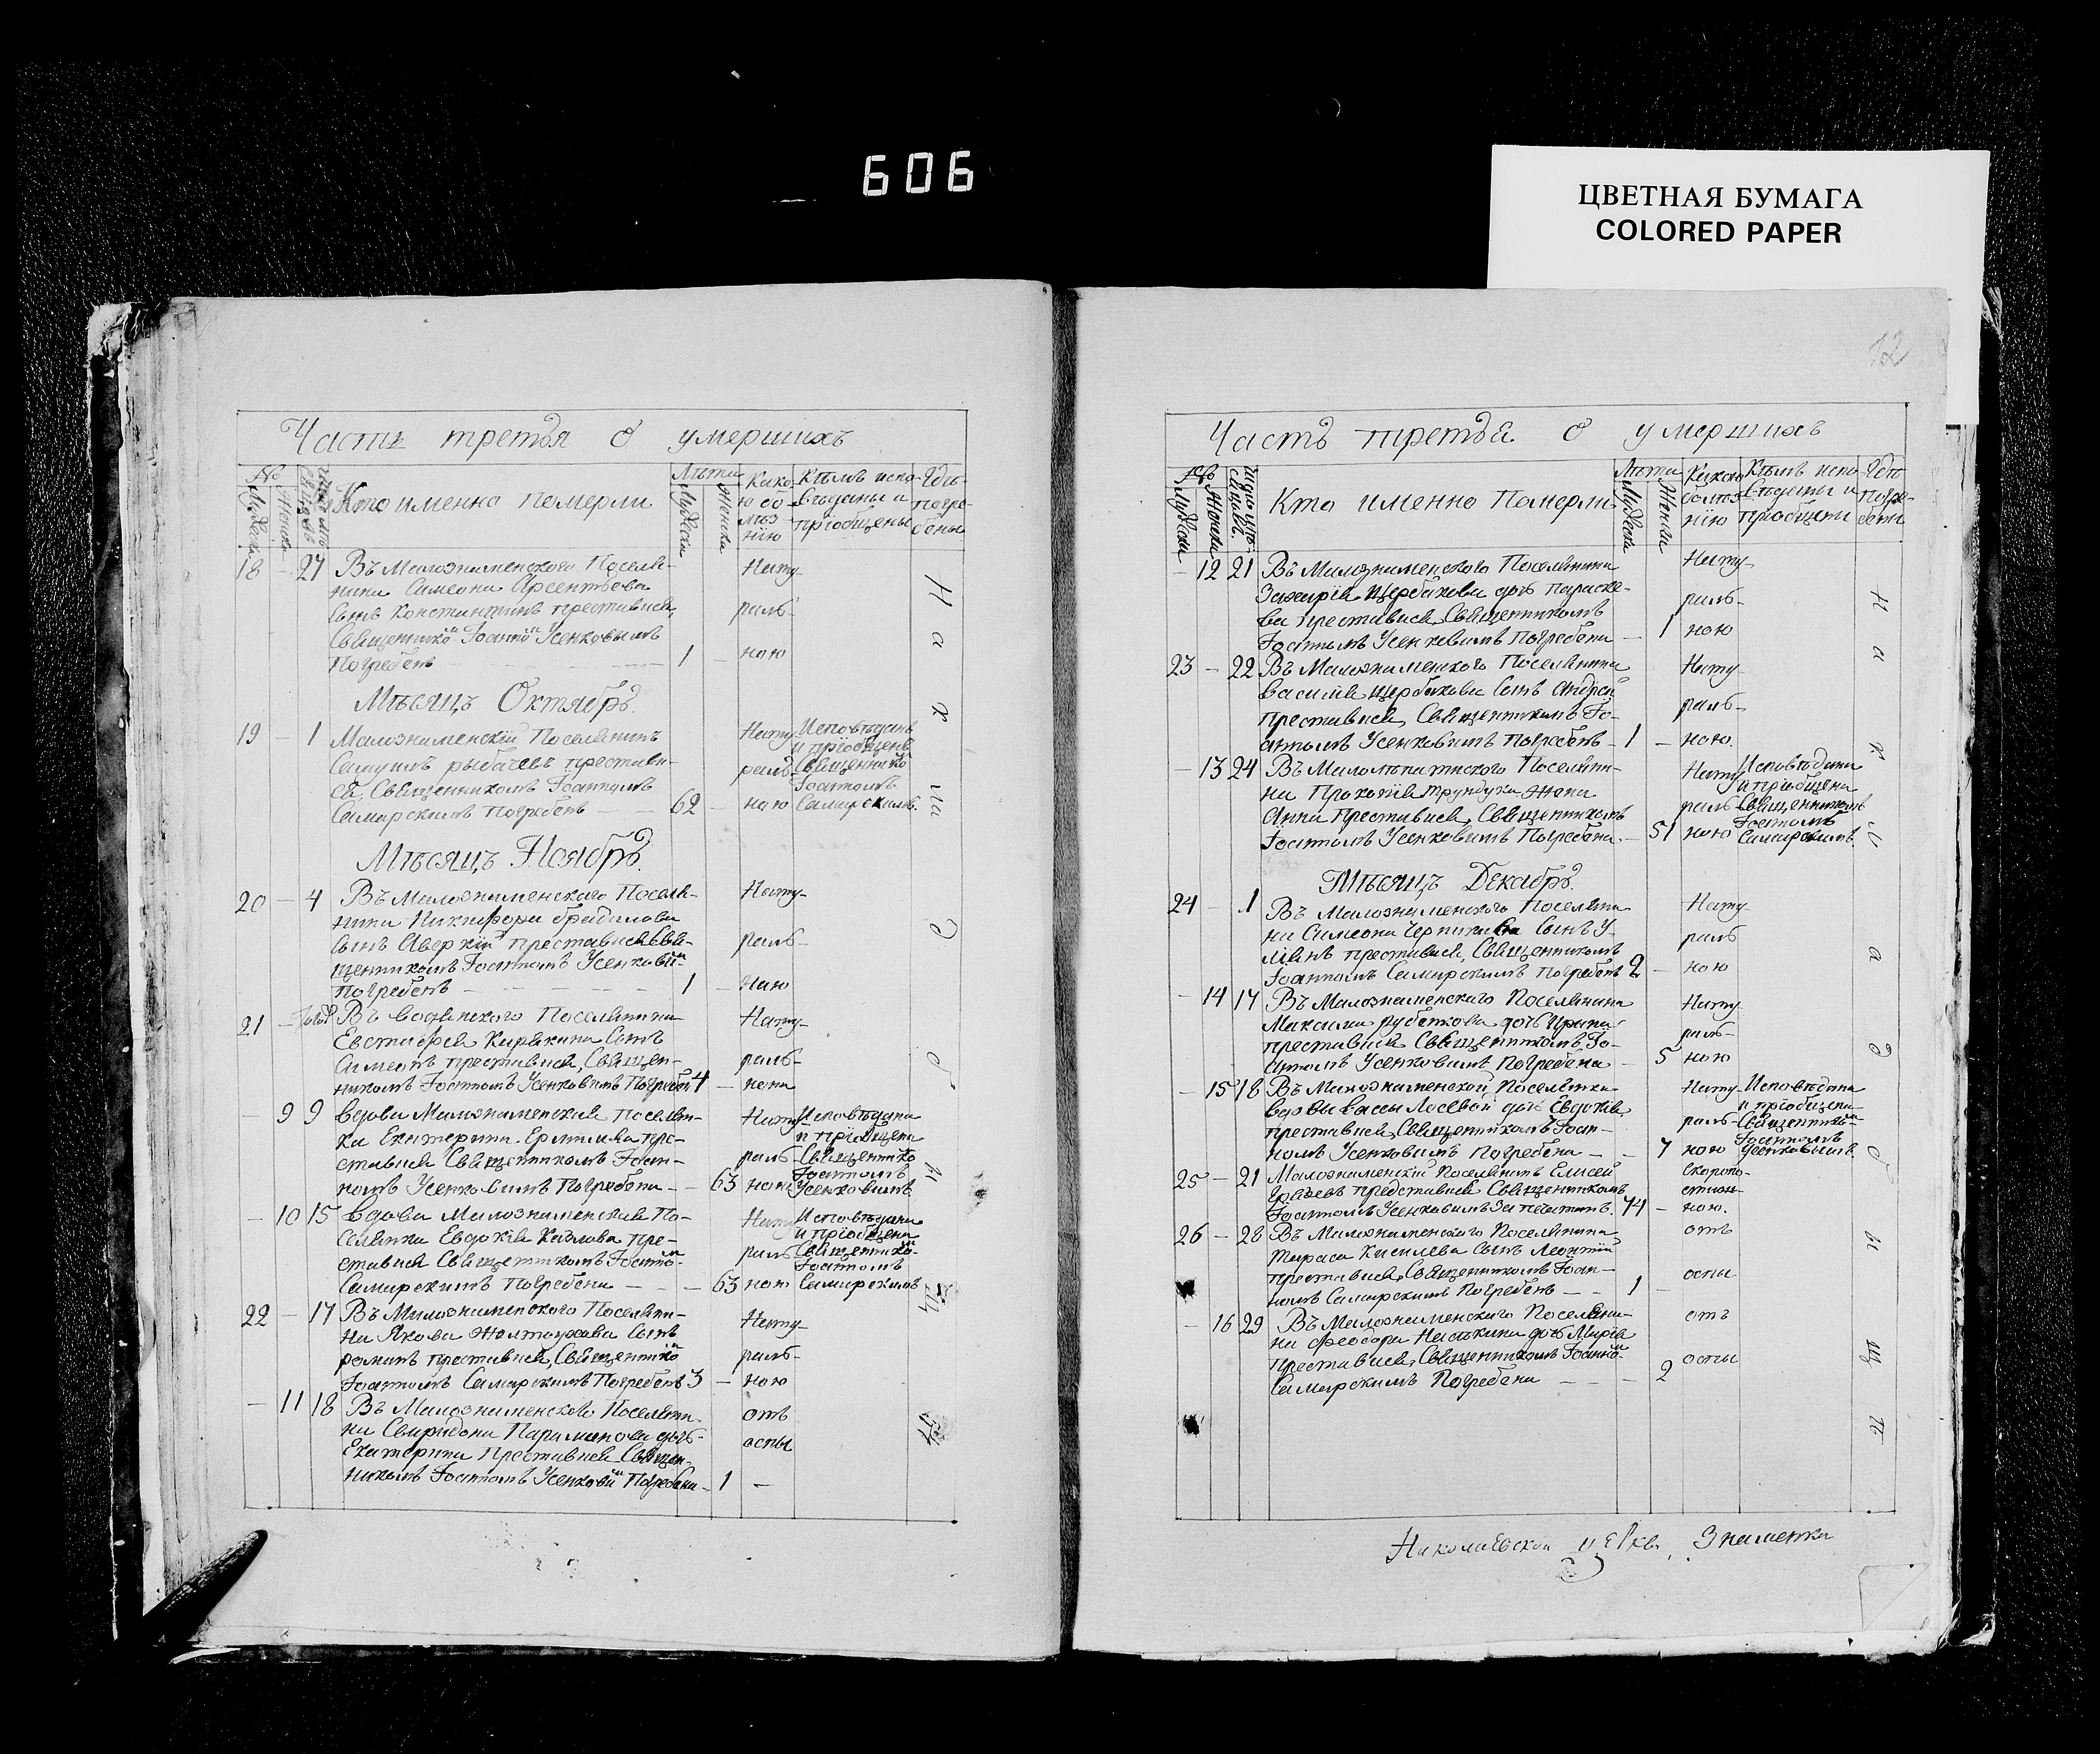 606
ЦВЕТНАЯ БУМАГА
COLORED PAPER
Часть третья о умершихъ
№
Мужеска
Женска
Кто именно померли
Лѣта
Мужеска
Женска
Како-
ю бо-
лѣз-
нію
Кѣмъ испо-
вѣданы и
пріобщены
Гдѣ
погре-
бены
18 – 27 Въ Малознаменского Поселя-
нина Симеона Арсентьева
сынъ Константинъ преставися,
Священнико^м Іоанно^м Усенковымъ
Погребенъ – 1 –
Нату-
раль-
ною
Мѣсяцъ Октябрь
19 – 1 Малознаменскій Поселянинъ
Самуилъ рыбачевъ престави-
ся, Священникомъ Іоанномъ
Самарскимъ Погребенъ – 62 –
Нату-
раль-
ною
Исповѣданъ
и пріобщенъ
Священнико^м
Іоанномъ
Самарскимъ
Мѣсяцъ Ноябрь
20 – 4 Въ Малознаменского Поселя-
нина Никифора брадилова
сынъ Аверкій преставися Свя-
щенникомъ Іоанномъ Усенковы^м
погребенъ – 1 –
Нату-
раль-
ною
21 – Въ водянского Поселянина
Евстафея Кирякина Сынъ
Симеонъ преставися, Священ-
никомъ Іоанномъ Усенковымъ Погребенъ 4 –
Нату-
раль-
ною
– 9 9 вдова Малознаменская поселян-
ка Екатерина Ермилова пре-
ставися Священникомъ Іоан-
номъ Усенковымъ Погребена – 63
Нату-
раль-
ною
Исповѣдана
и пріобщена
Священнико^м
Іоанномъ
Усенковымъ
– 10 15 вдова Малознаменская По-
селянка Евдокія Козлова пре-
ставися Священникомъ Іоанно^м
Самарскимъ Погребена – 63
Нату-
раль-
ною
Исповѣдана
и пріобщена
Священнико^м
Іоанномъ
Самарскимъ
22 – 17 Въ Малознаменского Поселяни-
на Якова Жолтоухова Сынъ
романъ преставися, Священнико^м
Іоанномъ Самарскимъ Погребенъ 3 –
Нату-
раль-
ною
– 11 18 Въ Малознаменского Поселяни-
на Свиридона Парамонова дочь
Екатерина Преставися Священ-
никомъ Іоанномъ Усенковы^м Погребена – 1
отъ
оспы
На кла д б и щ ѣ
12
Часть третья о умершихъ
№
Мужеска
Женска
Число умр.
Кто именно Померли
Лѣта
Мужеска
Женска
Какою
болѣз-
нію
Кѣмъ испо-
вѣданы и
пріобщены
Гдѣ
Погре-
бены
– 12 21 Въ Малознаменского Поселянина
Захарія Щербакова дочь параске-
ва Преставися Священникомъ
Іоанномъ Усенковымъ Погребена – 1
Нату-
раль-
ною
23 – 22 Въ Малознаменского Поселянина
василія щербакова Сынъ Андрей
преставися, Священникомъ Іо-
анномъ Усенковымъ Погребенъ – 1 –
Нату-
раль-
ною.
– 13 24 Въ Малолѣпатиского Поселяни-
на Прокопія трундука жена
Анна Преставися, Священникомъ
Іоанномъ Усенковымъ Погребена. – 51
Нату-
раль-
ною
Исповѣдана
и пріобщена
Священникомъ
Іоанномъ
Самарскимъ.
Мѣсяцъ Декабрь
24 – 1 Въ Малознаменского Поселяни-
на Симеона Черникова Сынъ У-
ліянъ преставися, Священникомъ
Іоанномъ Самарскимъ погребенъ 2 –
Нату-
раль
ною
– 14 17 Въ Малознаменского Поселянина
Максима рубенкова дочь Ирина
преставися Священникомъ, Іо-
анномъ Усенковымъ Погребена – 5
Нату-
раль-
ною
– 15 18 Въ Малознаменской Поселянки
вдовы вассы Лосевой дочь Евдокія,
преставися, Священникомъ Іоан-
номъ Усенковымъ Погребена – 7
Нату-
раль-
ною
Исповѣдана
и пріобщена
Священнико^м
Іоанномъ
Усенковымъ.
25 – 21 Малознаменскій Поселянинъ Елисей
представися Священникомъ
Іоанномъ Усенковымъ 74 –
скоропо-
стиж-
ною.
26 – 28 Въ Малознаменского Поселянина
Тараса Киселева Сынъ Леонтій
преставися, Священникомъ Іоан-
номъ Самарскимъ Погребенъ – 1 –
отъ
оспы
– 16 29 Въ Малознаменского Поселяни-
на Феодора Наськина дочь Марія
Преставися, Священникомъ Іоанно^м
Самарскимъ Погребена – 2
отъ
оспы
На кла д б и щ ѣ
Николаевской церкви, Знаменка